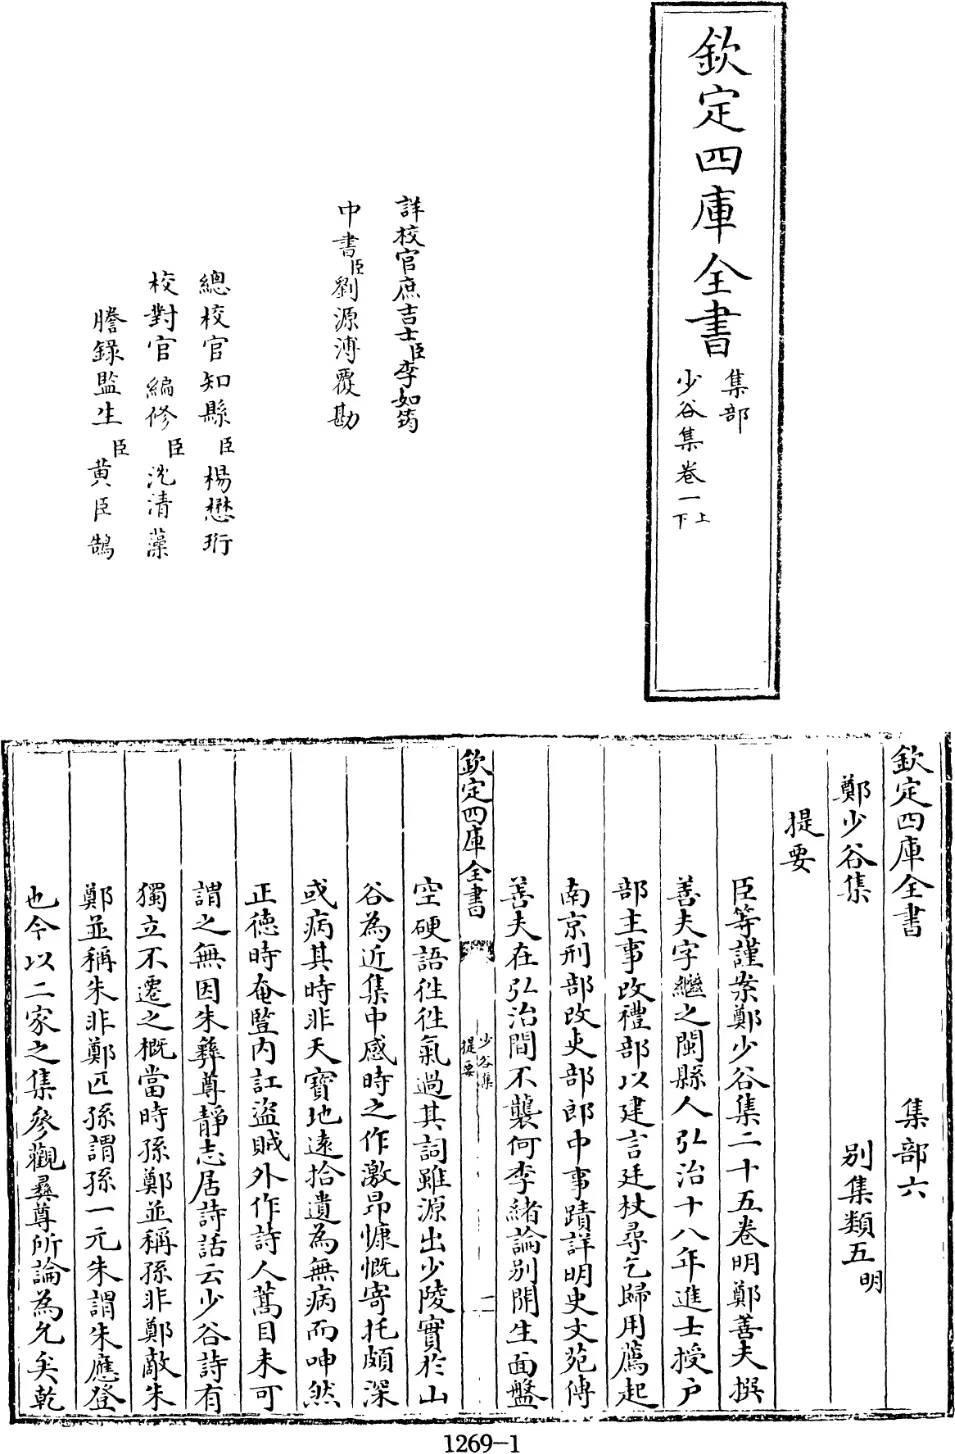 欽定四庫全書
集部
少谷集卷一上下
詳校官庶吉士臣李如筠
中書臣劉源溥覆勘
總校官知縣臣楊懋珩
校對官編修臣沈清藻
謄錄監生臣黃臣鵠
欽定四庫全書 集部六
鄭少谷集 別集類五明
提要
臣等謹案鄭少谷集二十五卷明鄭善夫撰
善夫字繼之閩縣人弘治十八年進士授户
部主事改禮部以建言廷杖尋乞歸用薦起
南京刑部改吏部郎中事蹟詳明史文苑傳
善夫在弘治間不襲何李緒論別開生面盤
欽定四庫全書 少谷集提要 一
空硬語徃徃氣過其詞雖源出少陵實於山
谷為近集中感時之作激昂慷慨寄托頗深
或病其時非天寶地遠拾遺為無病而呻然
正德時奄豎内訌盜賊外作詩人蒿目未可
謂之無因朱彝尊靜志居詩話云少谷詩有
獨立不遷之概當時孫鄭並稱孫非鄭敵朱
鄭並稱朱非鄭匹孫謂孫一元朱謂朱應登
也今以二家之集參觀彝尊所論為允矣乾
1269-1